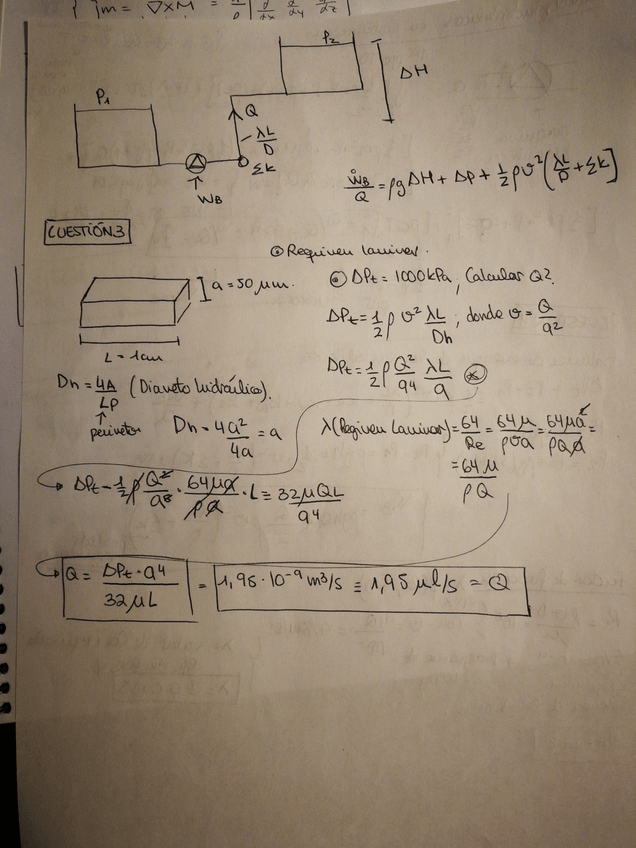 }m = ∇×M =
P₁
P₂
ΔH
Q
λL/D
Σk
W_B
Ẇ_B/Q = ρgΔH + ΔP + 1/2 ρv² (λL/D + Σk)
CUESTIÓN 3
⊙ Regimen laminar.
a = 50 μm.
L = 1cm
⊙ ΔPt = 1000 kPa; Calcular Q?
ΔPt = 1/2 ρ v² λL/Dh ; donde v = Q/a²
ΔPt = 1/2 ρ Q²/a⁴ λL/a ⊛
Dh = 4A/LP (Diametro hidráulico).
↑ perimetro
Dh = 4a²/4a = a
λ (Regimen Laminar) = 64/Re = 64μ/ρva = 64μa²/ρQa =
= 64μ/ρQ
ΔPt = 1/2 ρ Q²/a⁵ · 64μa/ρQ · L = 32μQL/a⁴
Q = ΔPt · a⁴/32μL = 1,95 · 10⁻⁹ m³/s ≡ 1,95 μl/s = Q